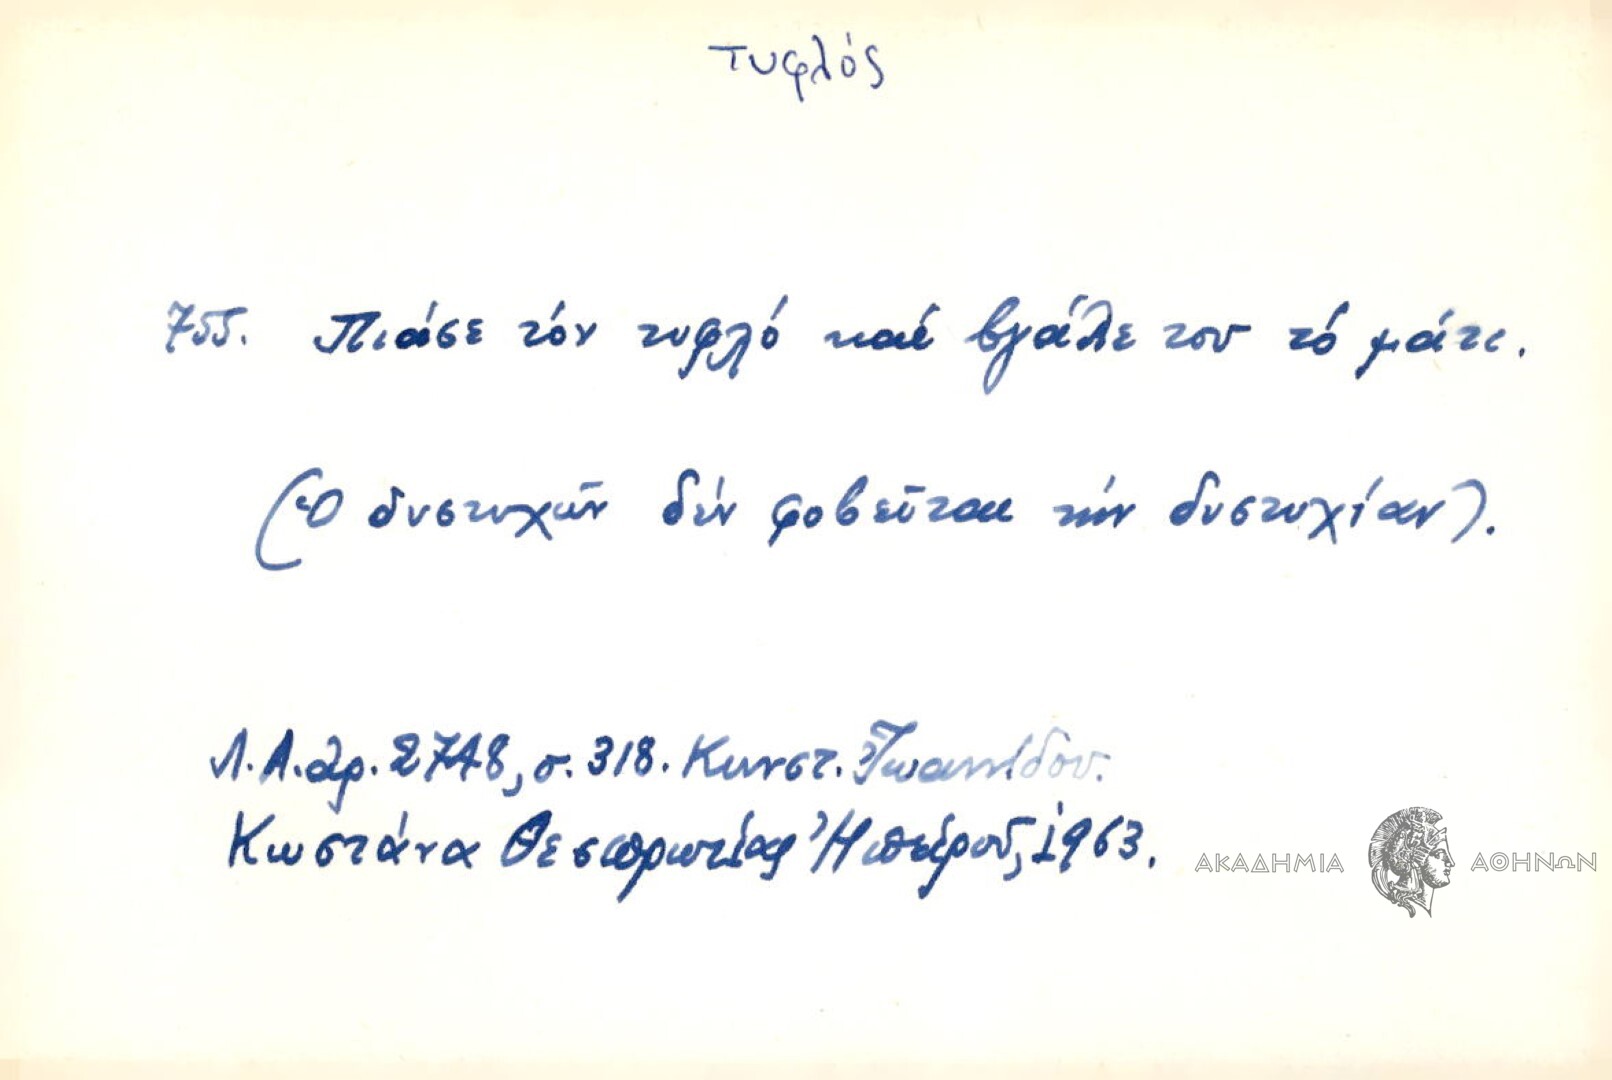 τυφλός
755. Πιάσε τόν τυφλό καί βγάλε του τό μάτι.
(Ὁ δυστυχῶν δέν φοβεῖται τήν δυστυχίαν).
Λ.Α. ἀρ. 2748, σ. 318. Κωνστ. Ἰωαννίδου.
Κωστάνα Θεσπρωτίας Ἠπείρου, 1963.
ΑΚΑΔΗΜΙΑ ΑΘΗΝΩΝ